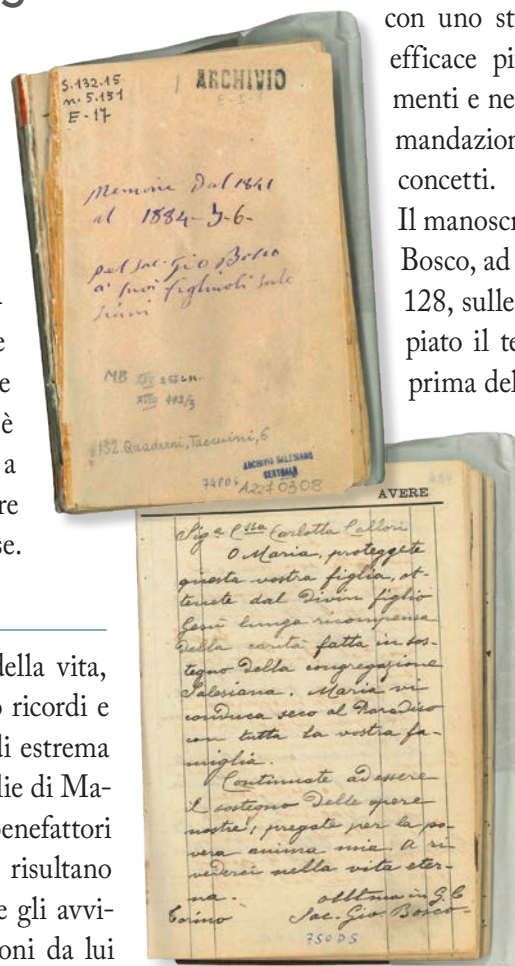 con uno st
efficace pi
menti e ne
mandazion
concetti.
Il manoscr
Bosco, ad
128, sulle
piato il te
prima del
e
e
è
a
re
se.
della vita,
o ricordi e
di estrema
lie di Ma-
benefattori
risultano
e gli avvi-
oni da lui
S.132.15
n. 5.151
E-17
ARCHIVIO
E-I-
Memorie Dal 1841
al 1884-5-6-
pel sac. Gio Bosco
a' suoi figliuoli sale
siani
MB
132. Quaderni, Taccuini, 6
ARCHIVIO SALESIANO
CENTRALE
A2270308
AVERE
Sigª Cssa Carlotta Callori
O Maria, proteggete
questa vostra figlia, ot-
tenete dal Divin figlio
Gesù lunga ricompensa
della carità fatta in sos-
tegno della congregazione
Salesiana. Maria vi
conduca seco al Paradiso
con tutta la vostra fa-
miglia.
Continuate ad essere
il sostegno delle opere
nostre; pregate per la po-
vera anima mia. A ri
vederci nella vita eter-
na.
obblmo in G. C
Torino Sac. Gio Bosco-
750D5